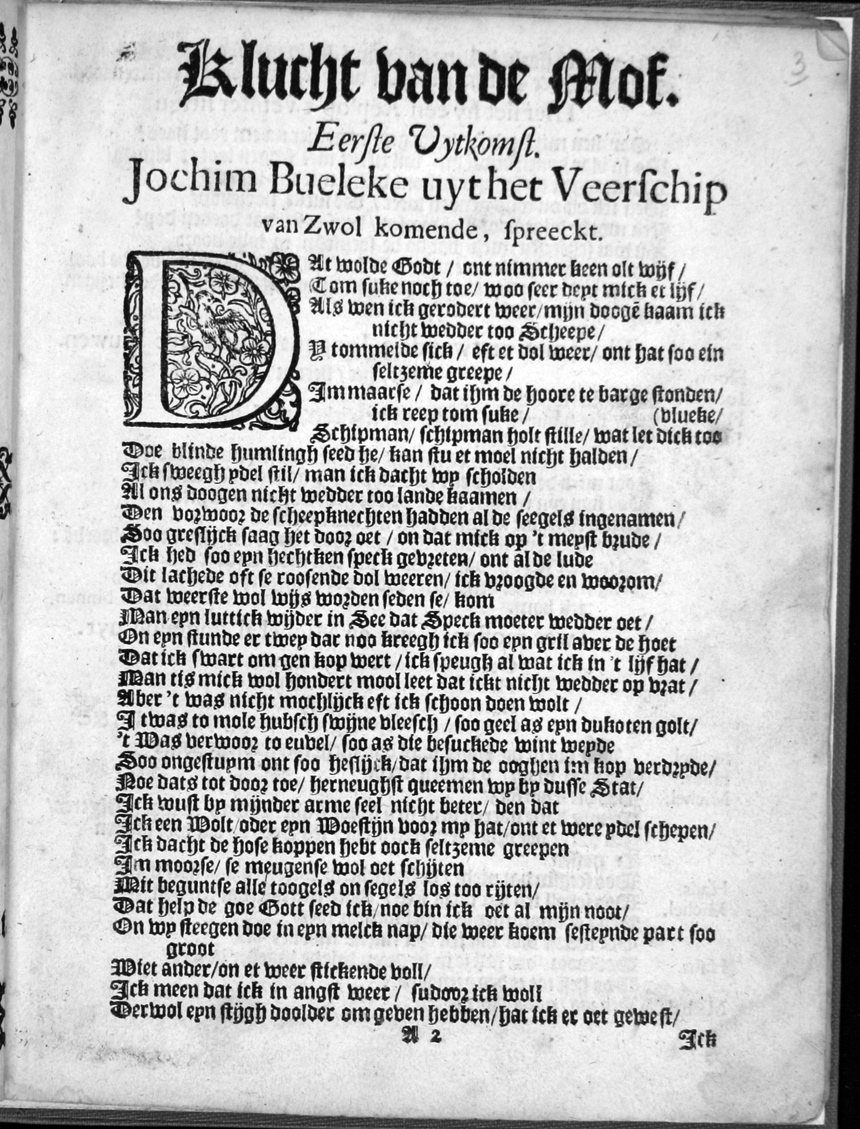 3
Klucht van de Mof.
Eerste Uytkomst.
Jochim Bueleke uyt het Veerschip
van Zwol komende, spreeckt.
DAt wolde Godt / ont nimmer keen olt wijf /
Tom suke noch toe / woo seer deyt mick et lijf /
Als wen ick gerodert weer / mijn doogẽ kaam ick
nicht wedder too Scheepe /
Y tommelde sick / eft et dol weer / ont hat soo ein
seltzeme greepe /
Immaarse / dat ihm de hoore te barge stonden /
ick reep tom suke / (blueke /
Schipman / schipman holt stille / wat let dick too
Doe blinde humlingh seed he / kan stu et moel nicht halden /
Ick sweegh ydel stil / man ick dacht wy scholden
Al ons doogen nicht wedder too lande kaamen /
Den vorwoor de scheepknechten hadden al de seegels ingenamen /
Soo greslijck saag het door oet / on dat mick op 't meyst brude /
Ick hed soo eyn hechtken speck gevreten / ont al de lude
Dit lachede oft se roosende dol weeren / ick vroogde en woorom /
Dat weerste wol wijs worden seden se / kom
Man eyn luttick wijder in See dat Speck moeter wedder oet /
On eyn stunde er twey dar noo kreegh ick soo eyn gril aver de hoet
Dat ick swart om gen kop wert / ick speugh al wat ick in 't lijf hat /
Man tis mick wol hondert mool leet dat ickt nicht wedder op vrat /
Aber 't was nicht mochlijck eft ick schoon doen wolt /
I twas to mole hubsch swijne vleesch / soo geel as eyn dukoten golt /
't Was verwoor to euvel / soo as die besuckede wint weyde
Soo ongestuym ont soo heslijck / dat ihm de ooghen im kop verdryde /
Noe dats tot door toe / herneughst queemen wy by dusse Stat /
Ick wust by mijnder arme seel nicht beter / den dat
Ick een Wolt / oder eyn Woestijn voor my hat / ont et were ydel schepen /
Ick dacht de hose koppen hebt oock seltzeme greepen
Im moorse / se meugense wol oet schijten
Mit beguntse alle toogels on segels los too rijten /
Dat help de goe Gott seed ick / noe bin ick oet al mijn noot /
On wy steegen doe in eyn melck nap / die weer koem sesteynde part soo
groot
Wiet ander / on et weer stickende voll /
Ick meen dat ick in angst weer / sudoor ick woll
Derwol eyn stijgh doolder om geven hebben / hat ick er oet gewest /
A 2
Ick